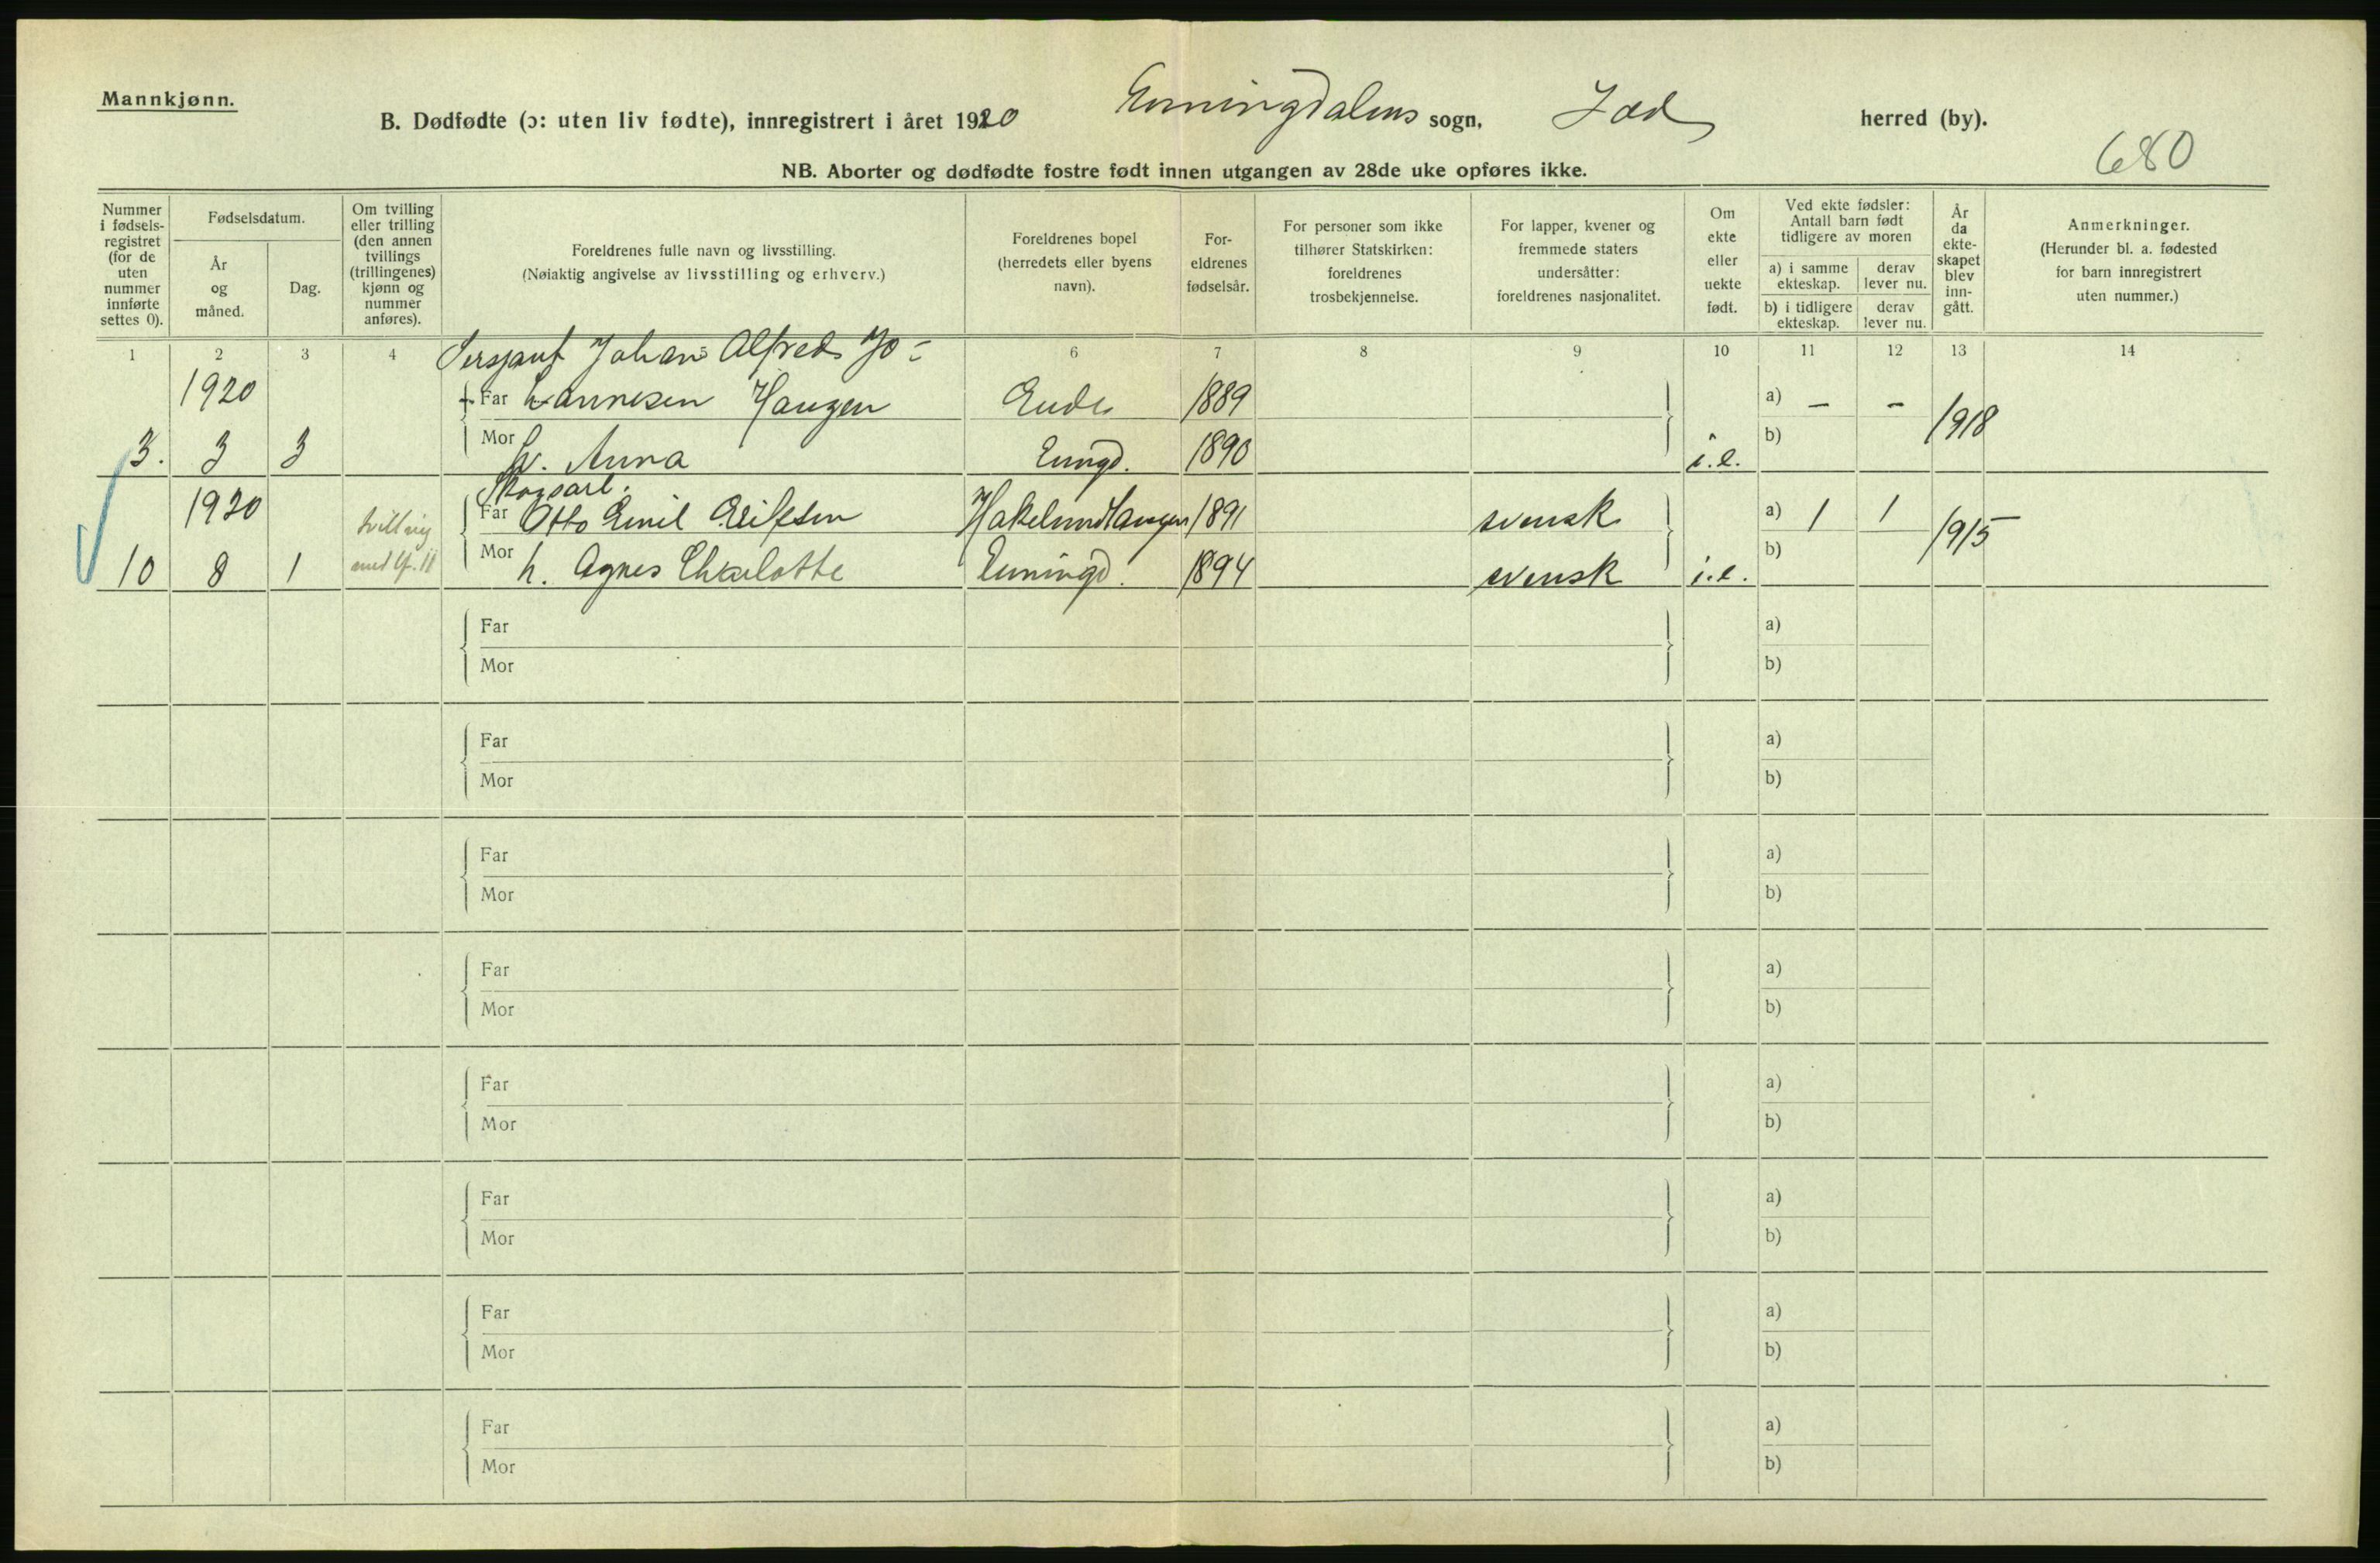 Mannkjønn.
B. Dødfødte (ɔ: uten liv fødte), innregistrert i året 1920 Enningdalens sogn, Idd herred (by).
680
NB. Aborter og dødfødte fostre født innen utgangen av 28de uke opføres ikke.
Nummer i fødsels-registret (for de uten nummer innførte settes 0).
Fødselsdatum.
År og måned.
Dag.
Om tvilling eller trilling (den annen tvillings (trillingenes) kjønn og nummer anføres).
Foreldrenes fulle navn og livsstilling.
(Nøiaktig angivelse av livsstilling og erhverv.)
Foreldrenes bopel (herredets eller byens navn).
For-eldrenes fødselsår.
For personer som ikke tilhører Statskirken: foreldrenes trosbekjennelse.
For lapper, kvener og fremmede staters undersåtter: foreldrenes nasjonalitet.
Om ekte eller uekte født.
Ved ekte fødsler: Antall barn født tidligere av moren
a) i samme ekteskap.
derav lever nu.
b) i tidligere ekteskap.
derav lever nu.
År da ekte-skapet blev inn-gått.
Anmerkninger.
(Herunder bl. a. fødested for barn innregistrert uten nummer.)
1 2 3 4 6 7 8 9 10 11 12 13 14
Sersjant Johan Alfred Jo-
1920 Far hannesen Haugen 1889 a) – – 1918
3. 3 3 Mor h. Anna Enngd. 1890 i.e. b)
Skogsarb.
1920 tvilling Far Otto Emil 1891 svensk a) 1 1 1915
10 8 1 med Mor h. Agnes Charlotte Enningd. 1894 svensk i.e. b)
Far a)
Mor b)
Far a)
Mor b)
Far a)
Mor b)
Far a)
Mor b)
Far a)
Mor b)
Far a)
Mor b)
Far a)
Mor b)
Far a)
Mor b)